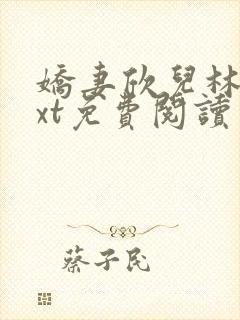 嬌妻欣兒林
xt免費閱讀
蔡子民